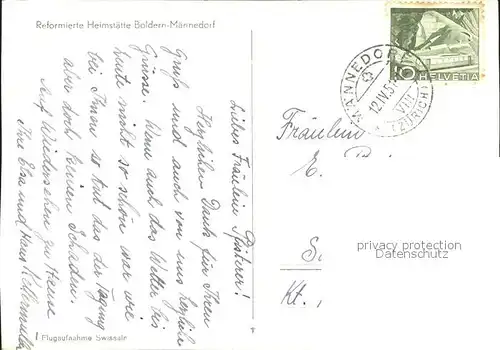 Reformierte Heimstätte Boldern-Männedorf
Liebes Fräulein Pfisterer!
Herzlichen Dank für Ihren
Gruss und auch von uns herzliche
Grüsse. Wenn auch das Wetter bis
heute nicht so schön war wie
bei Ihnen so tut das der Tagung
aber doch keinen Schaden.
Auf Wiedersehen zu Hause
Ihre Elsa und Hans
Flugaufnahme Swissair
HELVETIA
MÄNNEDORF
12.IV.5
VIII
(ZÜRICH)
Fräulein
E.
S
Kt.
privacy protection
Datenschutz